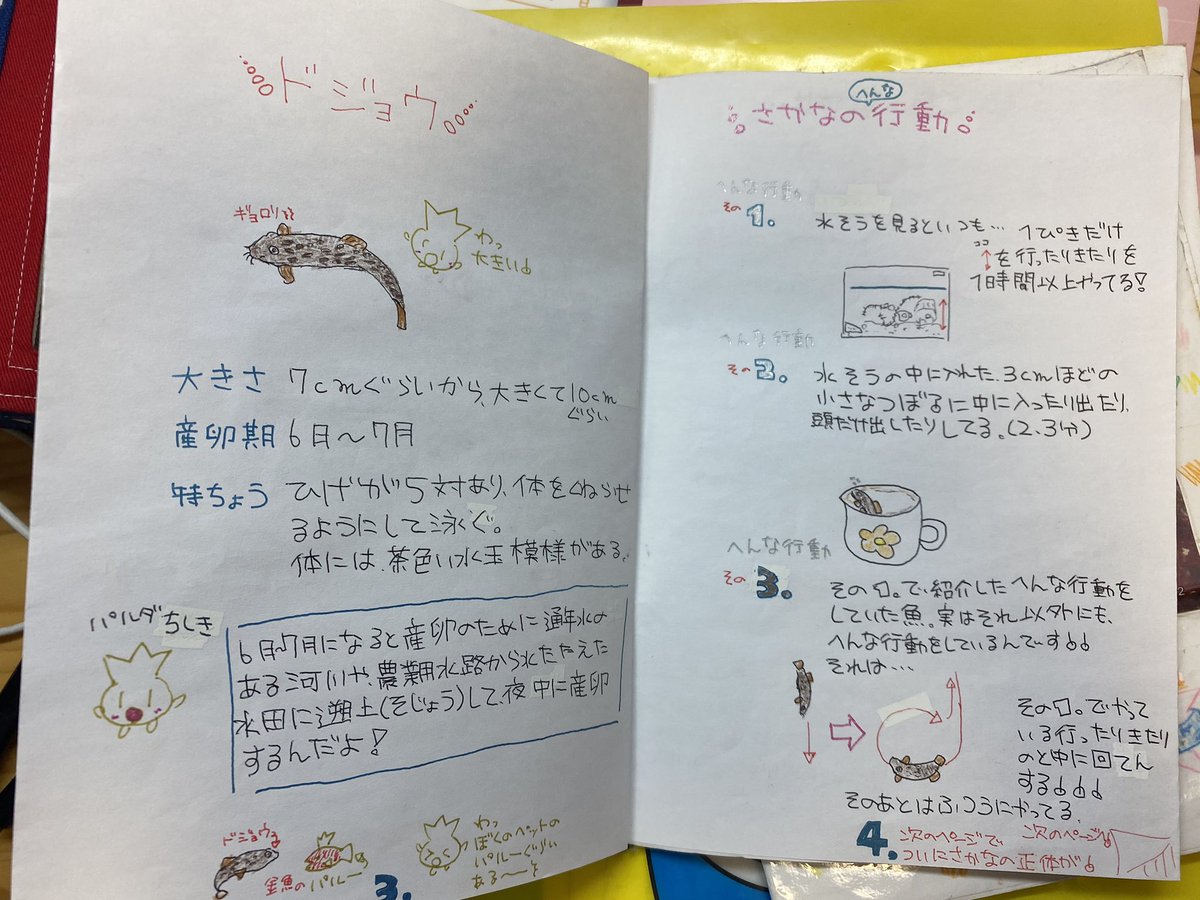 ドジョウ
ギョロリ
わっ
大きい
大きさ 7cmぐらいから、大きくて10cm
ぐらい
産卵期 6月〜7月
特ちょう ひげが5対あり、体をくねらせ
るようにして泳ぐ。
体には、茶色い水玉模様がある。
パルダちしき
6月〜7月になると産卵のために通年水の
ある河川や、農業用水路から水をたたえた
水田に遡上(そじょう)して、夜中に産卵
するんだよ!
ドジョウ
金魚のパルー
わっ
ぼくのペットの
パルーぐらい
ある〜
3.
へんな
さかなの行動
へんな行動
その1.
水そうを見るといつも… 1ぴきだけ
ココ
を行ったりきたりを
1時間以上やってる!
へんな行動
その2.
水そうの中に入れた、3cmほどの
小さなつぼるに中に入ったり出たり、
頭だけ出したりしてる。(2、3分)
へんな行動
その3.
その1。で、紹介したへんな行動を
していた魚。実はそれ以外にも、
へんな行動をしているんです
それは…
その1。でやって
いる行ったりきたり
のと中に回てん
する
そのあとはふつうにやってる。
4.
次のページで
ついにさかなの正体が
次のページ